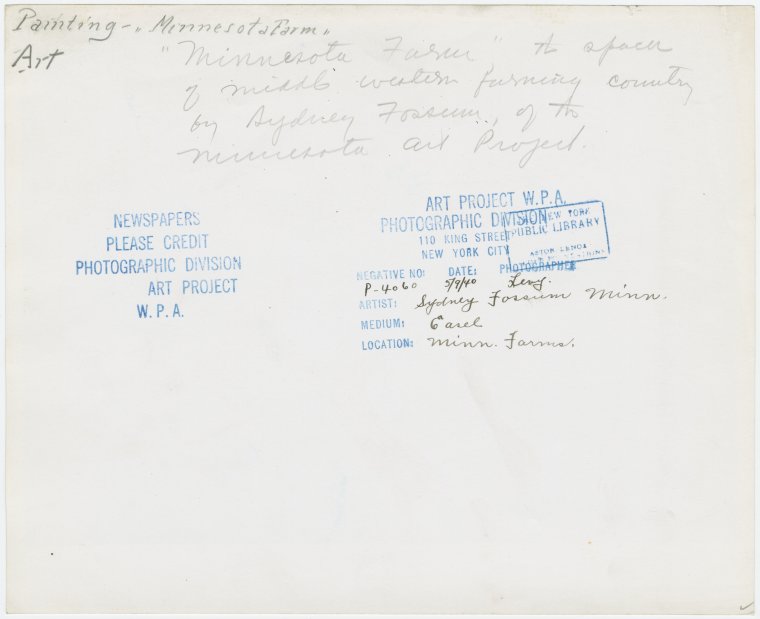 Painting - "Minnesota Farm"
Art
"Minnesota Farm", A
of middle western farming country
by Sydney Fossum, of the
Minnesota Art Project.
NEWSPAPERS
PLEASE CREDIT
PHOTOGRAPHIC DIVISION
ART PROJECT
W.P.A.
ART PROJECT W.P.A.
PHOTOGRAPHIC DIVISION
110 KING STREET
NEW YORK CITY
NEW YORK
PUBLIC LIBRARY
ASTOR LENOX
NEGATIVE NO: DATE: PHOTOGRAPHER
P-4060 5/9/40 Levy.
ARTIST: Sydney Fossum Minn.
MEDIUM: Easel
LOCATION: Minn. Farms.